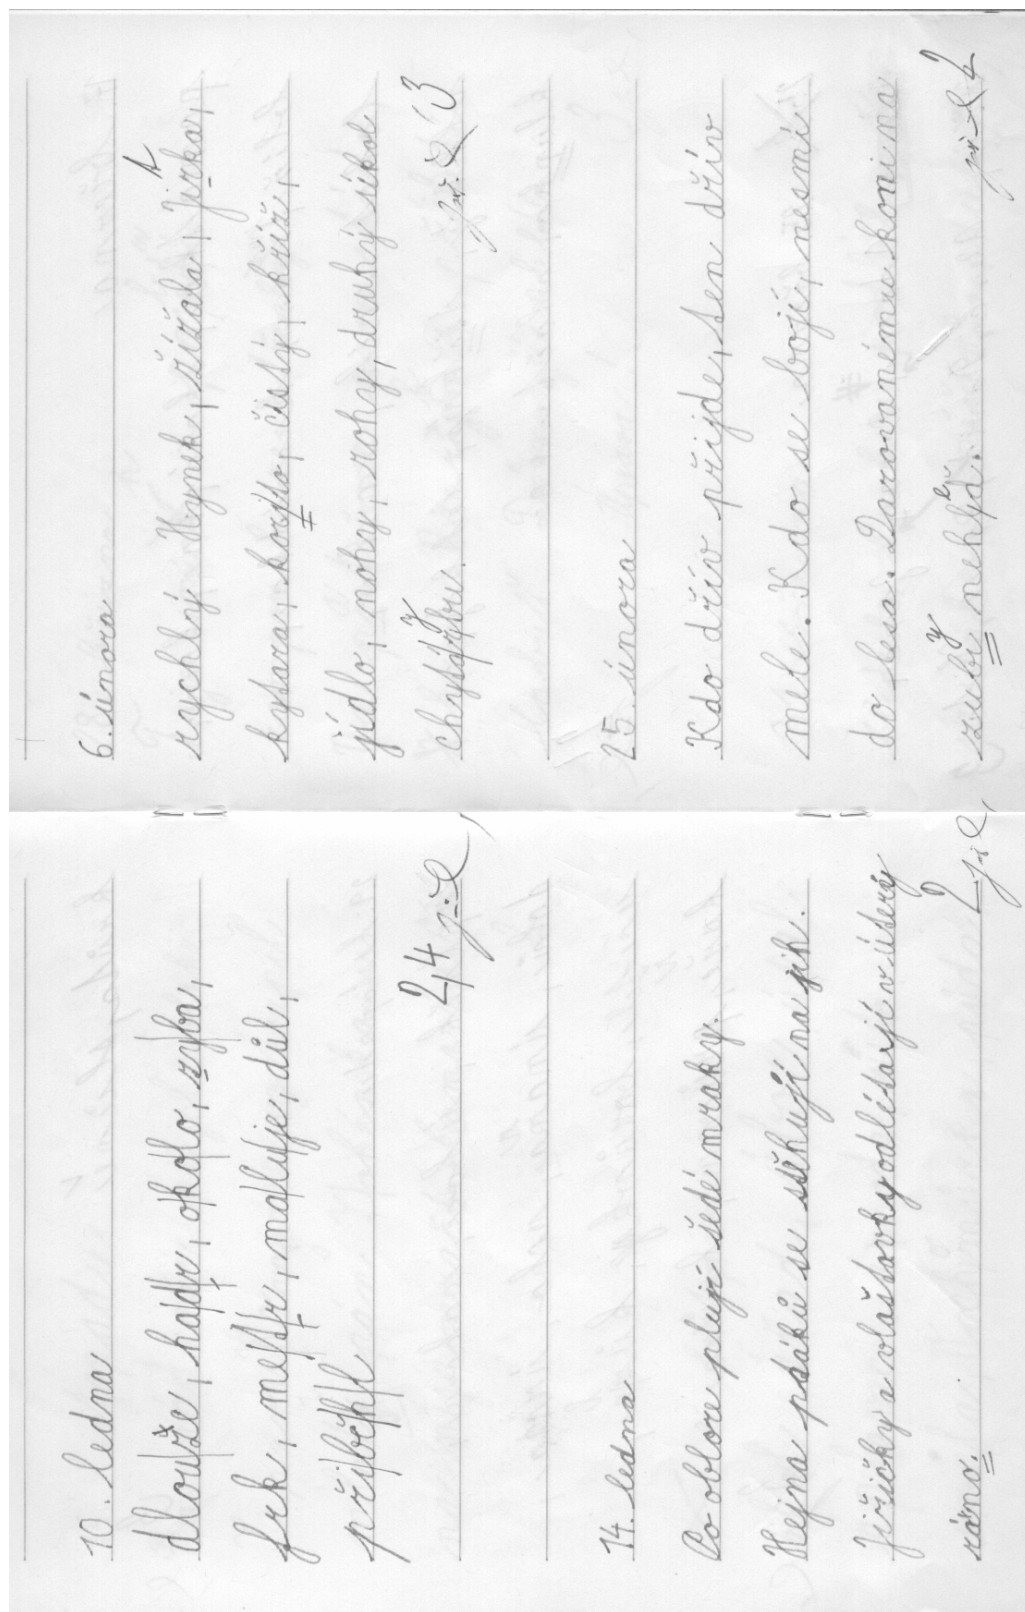 10. ledna
dlouže, hadr, okolo, ryba,
frk, me, maluje, důl,
příběh
2,4
14. ledna
Po obloze plují šedé mraky.
Hejna ptáků se stěhují na jih.
Jiřičky a vlaštovky odlétají v úterý
ráno.
2
6. února
rychlý Hynek, žížala, jizka,
kytara, koryto, čistý, kříž,
jídlo, nohy, rohy, druhý úkol
chytí rybu.
3
25. února
Kdo dřív přijde, ten dřív
mele. Kdo se bojí, nesmí
do lesa. Darovanému koni na
zubi nehlyď.
2